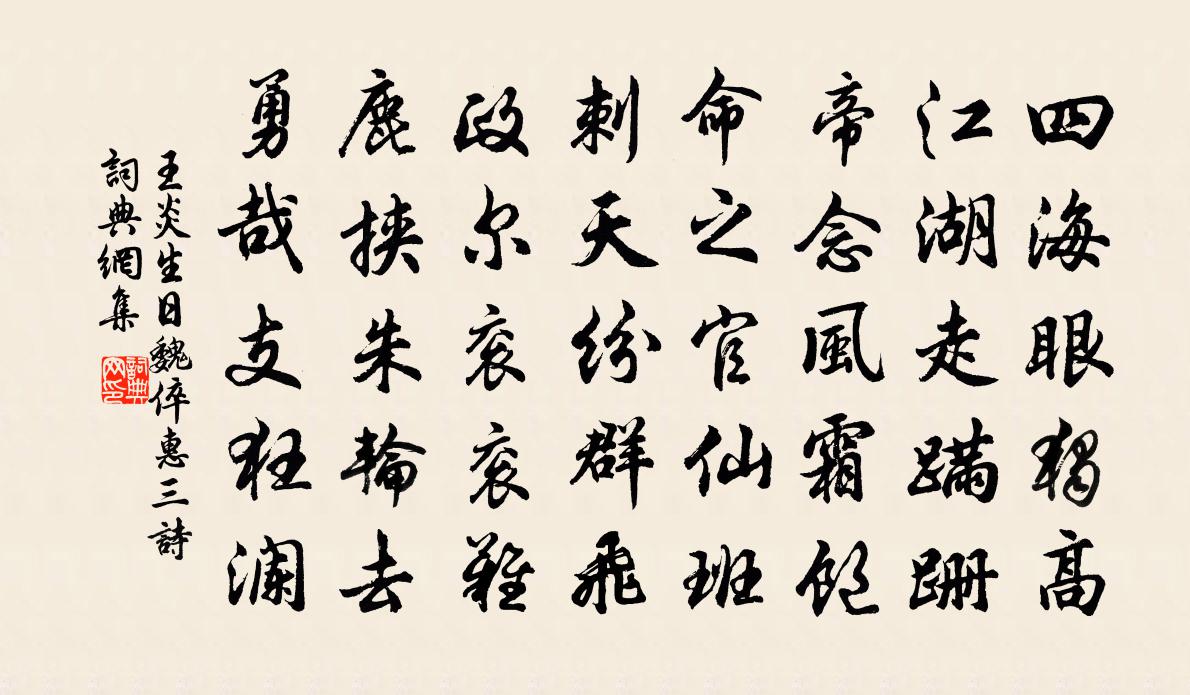 四海眼獨高
江湖走蹣跚
帝念風霜飽
命之官仙班
刺天紛群飛
政尔衮衮難
鹿挾朱輪去
勇哉支狂瀾
王炎生日魏倅惠三詩
詞典網集
詞典网印